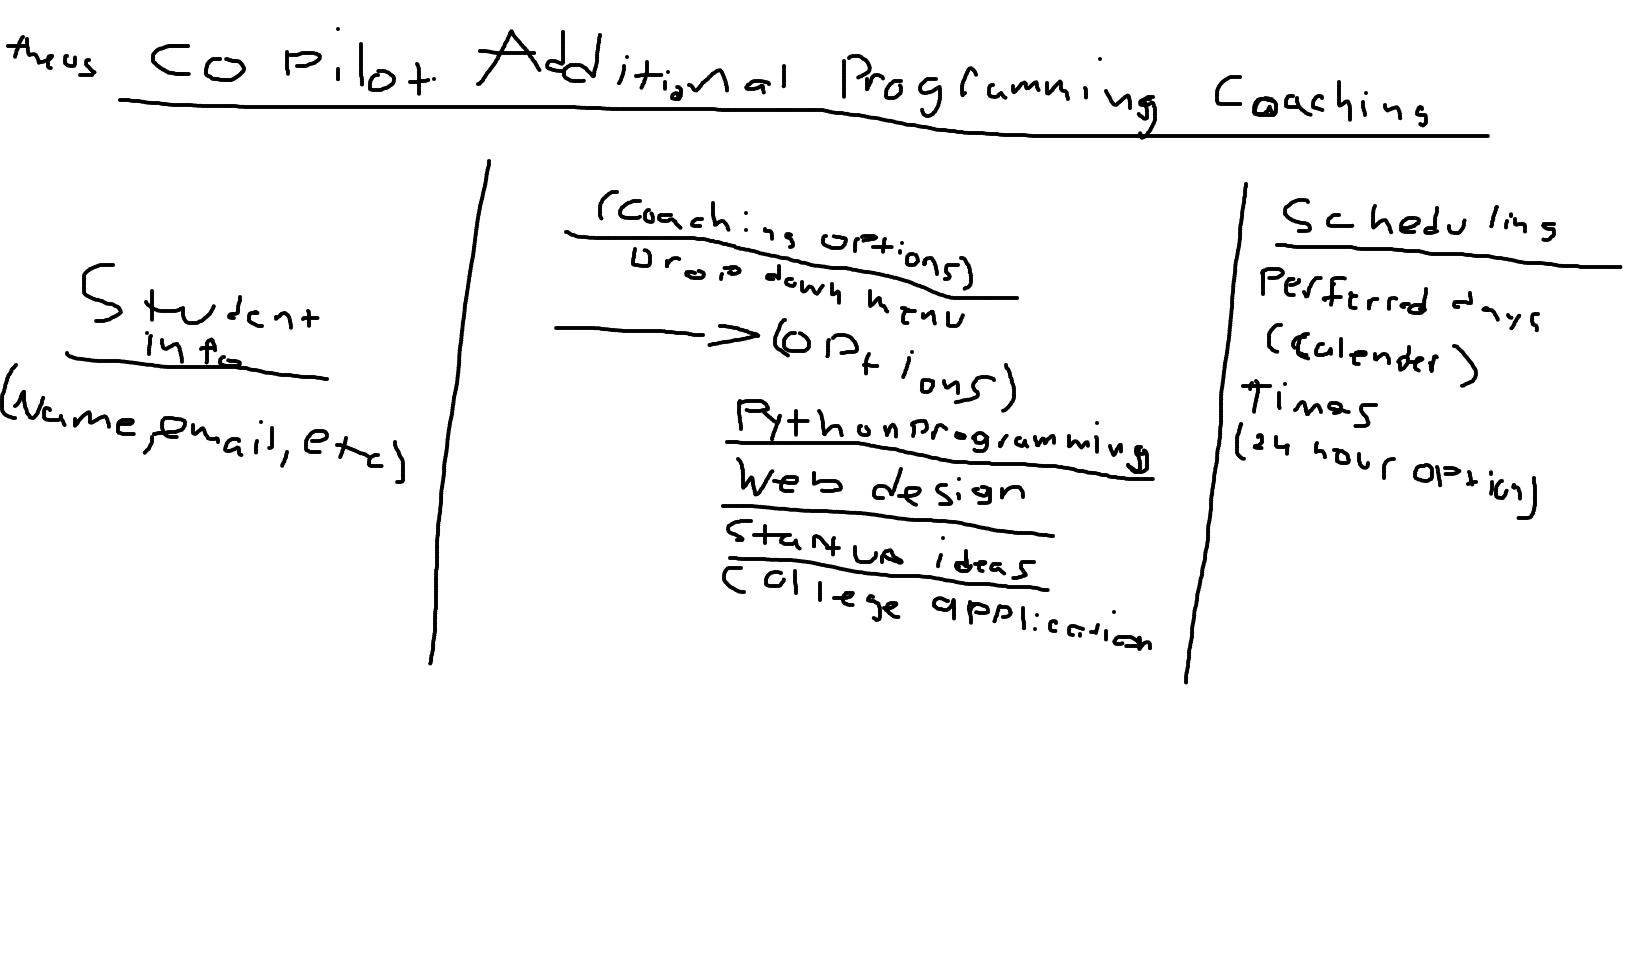 theus Copilot Additional Programming Coaching
Student
info
(Name, email, etc)
(Coaching options)
Drop down menu
(options)
Python programming
Web design
Startup ideas
College application
Scheduling
Perferred days
(Calender)
Times
(24 hour option)